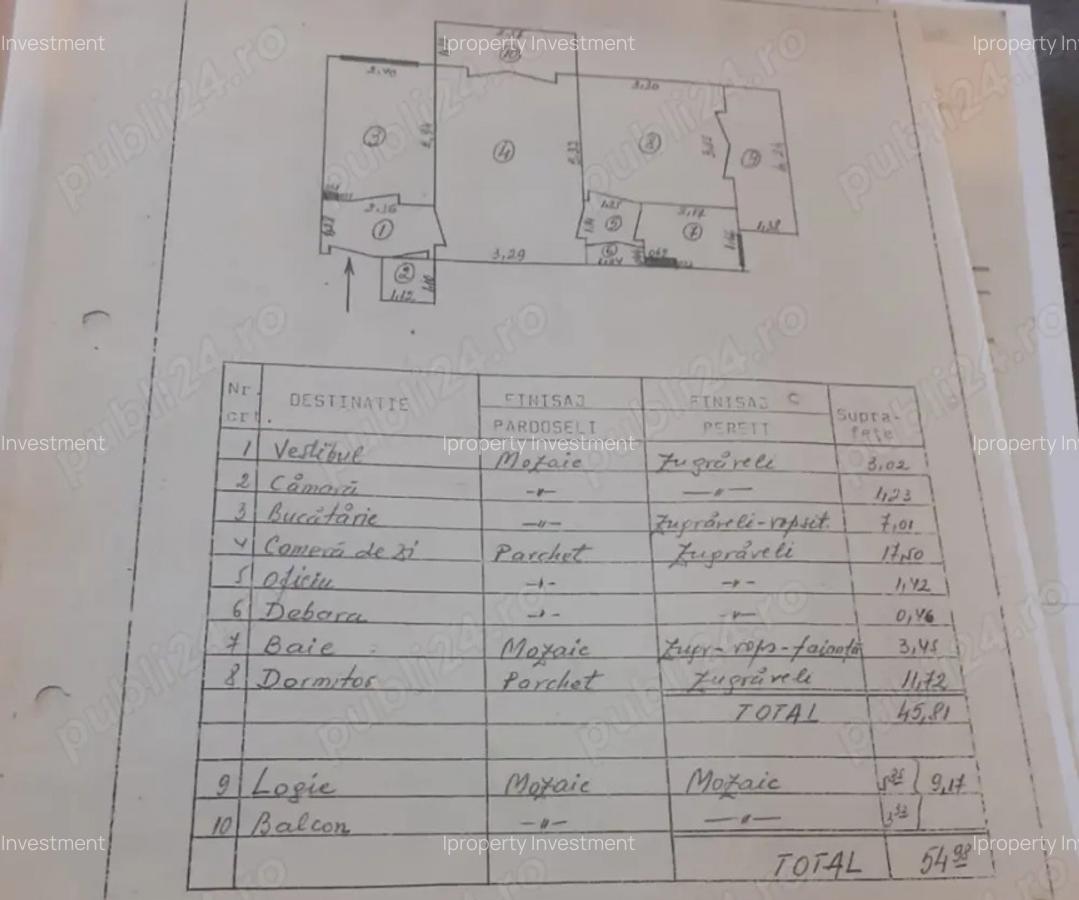 Iproperty Investment
publi24.ro
10
2,40
3,30
3
4
8
9
2,36
1
1,25
5
2,17
7
1,38
3,29
6
2
1,12
Nr. crt.
DESTINATIE
FINISAJ PARDOSELI
FINISAJ PERETI
Supra-fețe
1 Vestibul Mozaic Zugrăveli 3,02
2 Cămară -"- -"- 1,23
3 Bucătărie -"- Zugrăveli-vopsit. 7,01
4 Cameră de zi Parchet Zugrăveli 17,50
5 Oficiu -"- -"- 1,42
6 Debara -"- -"- 0,46
7 Baie Mozaic Zugr-vops-faianță 3,45
8 Dormitor Parchet Zugrăveli 11,72
TOTAL 45,81
9 Logie Mozaic Mozaic 9,17
10 Balcon -"- -"-
TOTAL 54,98